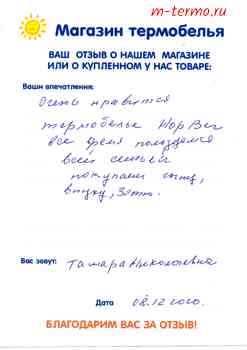 m-termo.ru
Магазин термобелья
ВАШ ОТЗЫВ О НАШЕМ МАГАЗИНЕ
ИЛИ О КУПЛЕННОМ У НАС ТОВАРЕ:
Ваши впечатления:
Очень нравится
термобелье НорВег
все время пользуемся
всей семьей
покупаем сыну,
внуку, зятю.
Вас зовут: Тамара Николаевна
Дата 08.12.2020.
БЛАГОДАРИМ ВАС ЗА ОТЗЫВ!